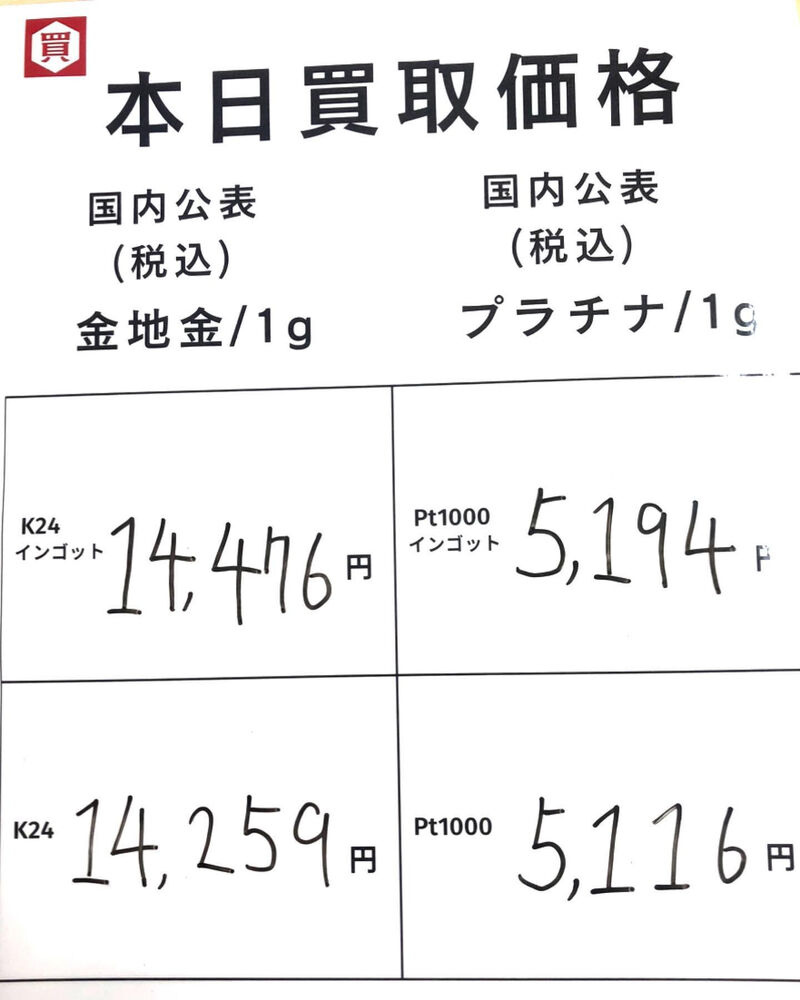 買
本日買取価格
国内公表
(税込)
金地金/1g
国内公表
(税込)
プラチナ/1g
K24
インゴット
14,476円
Pt1000
インゴット
5,194円
K24
14,259円
Pt1000
5,116円